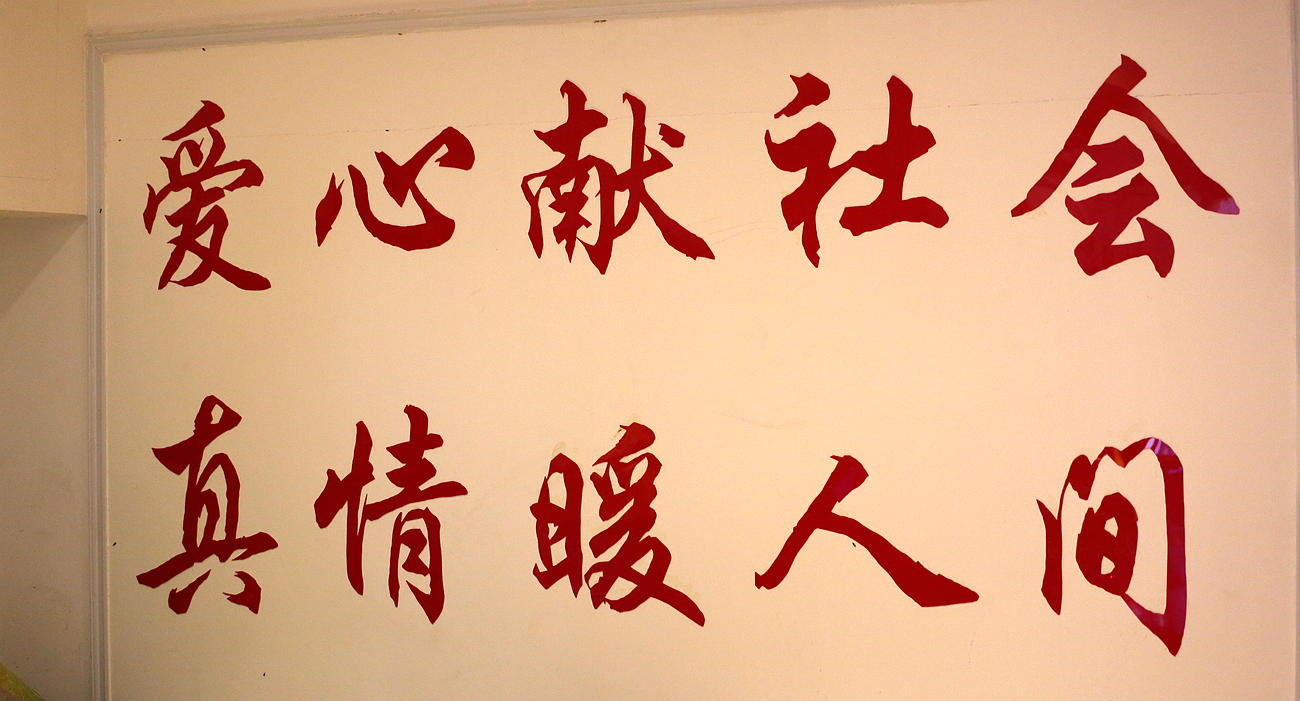 爱心献社会
真情暖人间